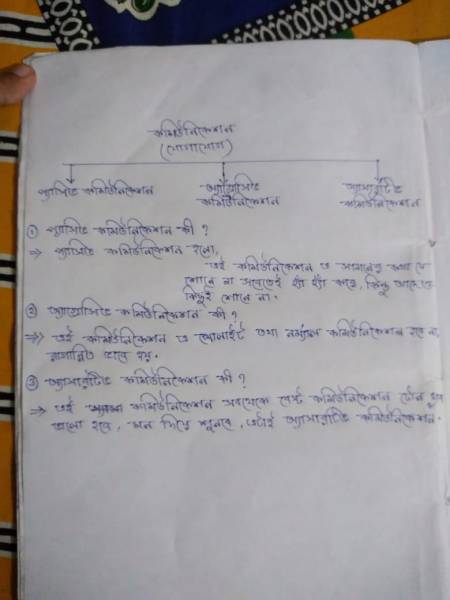 কমিউনিকেশন
(যোগাযোগ)
প্যাসিভ কমিউনিকেশন
অ্যাগ্রেসিভ কমিউনিকেশন
অ্যাসারটিভ কমিউনিকেশন
① প্যাসিভ কমিউনিকেশন কী ?
⇒ প্যাসিভ কমিউনিকেশন হলো,
এই কমিউনিকেশন এ সামনের কথা সে
শোনে না সবেতেই হ্যাঁ হ্যাঁ করে, কিন্তু
কিছুই শোনে না।
② অ্যাগ্রেসিভ কমিউনিকেশন কী ?
⇒ এই কমিউনিকেশন এ পোলাইট তথা নর্ম্যাল কমিউনিকেশন হবে না,
রাগান্বিত ভাবে হয়।
③ অ্যাসারটিভ কমিউনিকেশন কী ?
⇒ এই কমিউনিকেশন সবথেকে বেস্ট কমিউনিকেশন টোন খুব
ভালো হবে, মন দিয়ে শুনবে, এটাই অ্যাসারটিভ কমিউনিকেশন।